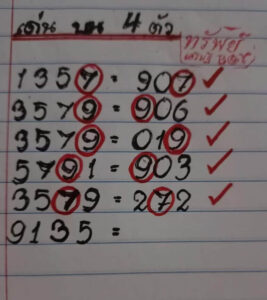 เด่น บน 4 ตัว
ทรัพย์
1357 = 907 ✓
3579 = 906 ✓
3579 = 019 ✓
5791 = 903 ✓
3579 = 272 ✓
9135 =